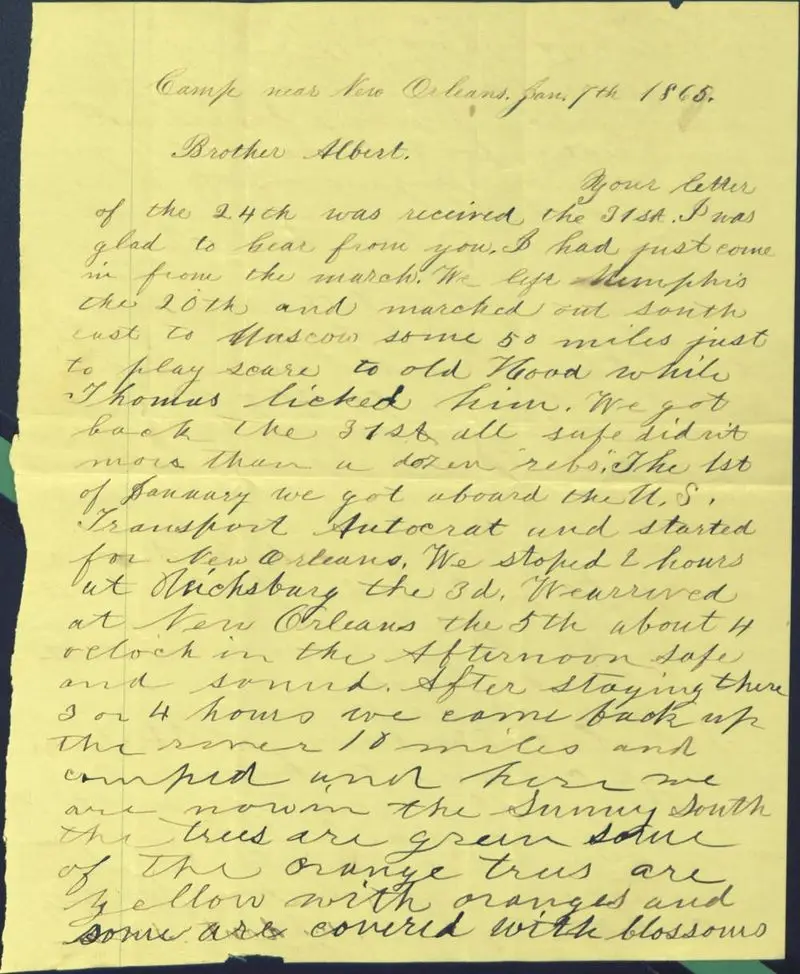 Camp near New Orleans. Jan. 7th 1865.
Brother Albert.
Your letter
of the 24th was received the 31st. I was
glad to hear from you. I had just come
in from the march. We left Memphis
the 20th and marched out south
east to Moscow some 50 miles just
to play scare to old Hood while
Thomas licked him. We got
back the 31st all safe didn't
more than a dozen "rebs". The 1st
of January we got aboard the U.S.
Transport Autocrat and started
for New Orleans. We stoped 2 hours
at Vicksburg the 3d. We arrived
at New Orleans the 5th about 4
oclock in the Afternoon safe
and sound. After staying there
3 or 4 hours we came back up
the river 10 miles and
camped and here we
are now in the Sunny South
the trees are green some
of the orange trees are
yellow with oranges and
some are covered with blossoms